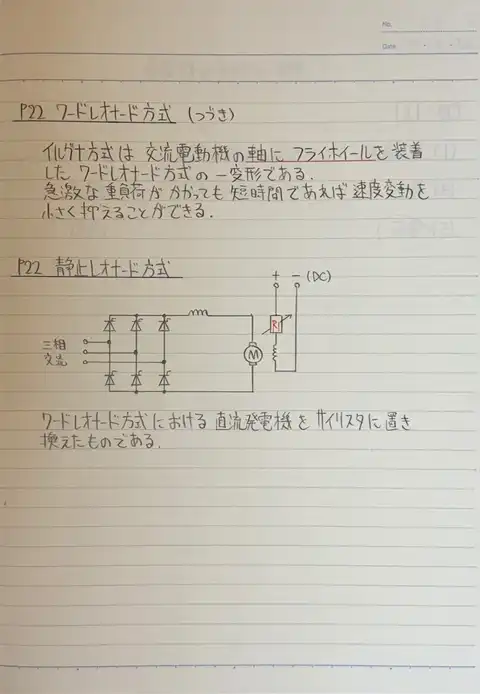 No.
Date
P22 ワードレオナード方式 (つづき)
イルグナ方式は 交流電動機の軸に フライホイールを 装着
した ワードレオナード方式の 一変形である.
急激な重負荷が かかっても 短時間であれば 速度変動を
小さく抑えることができる.
P22 静止レオナード方式
+ - (DC)
Rf
三相
交流
M
ワードレオナード方式における 直流発電機を サイリスタに置き
換えたものである.